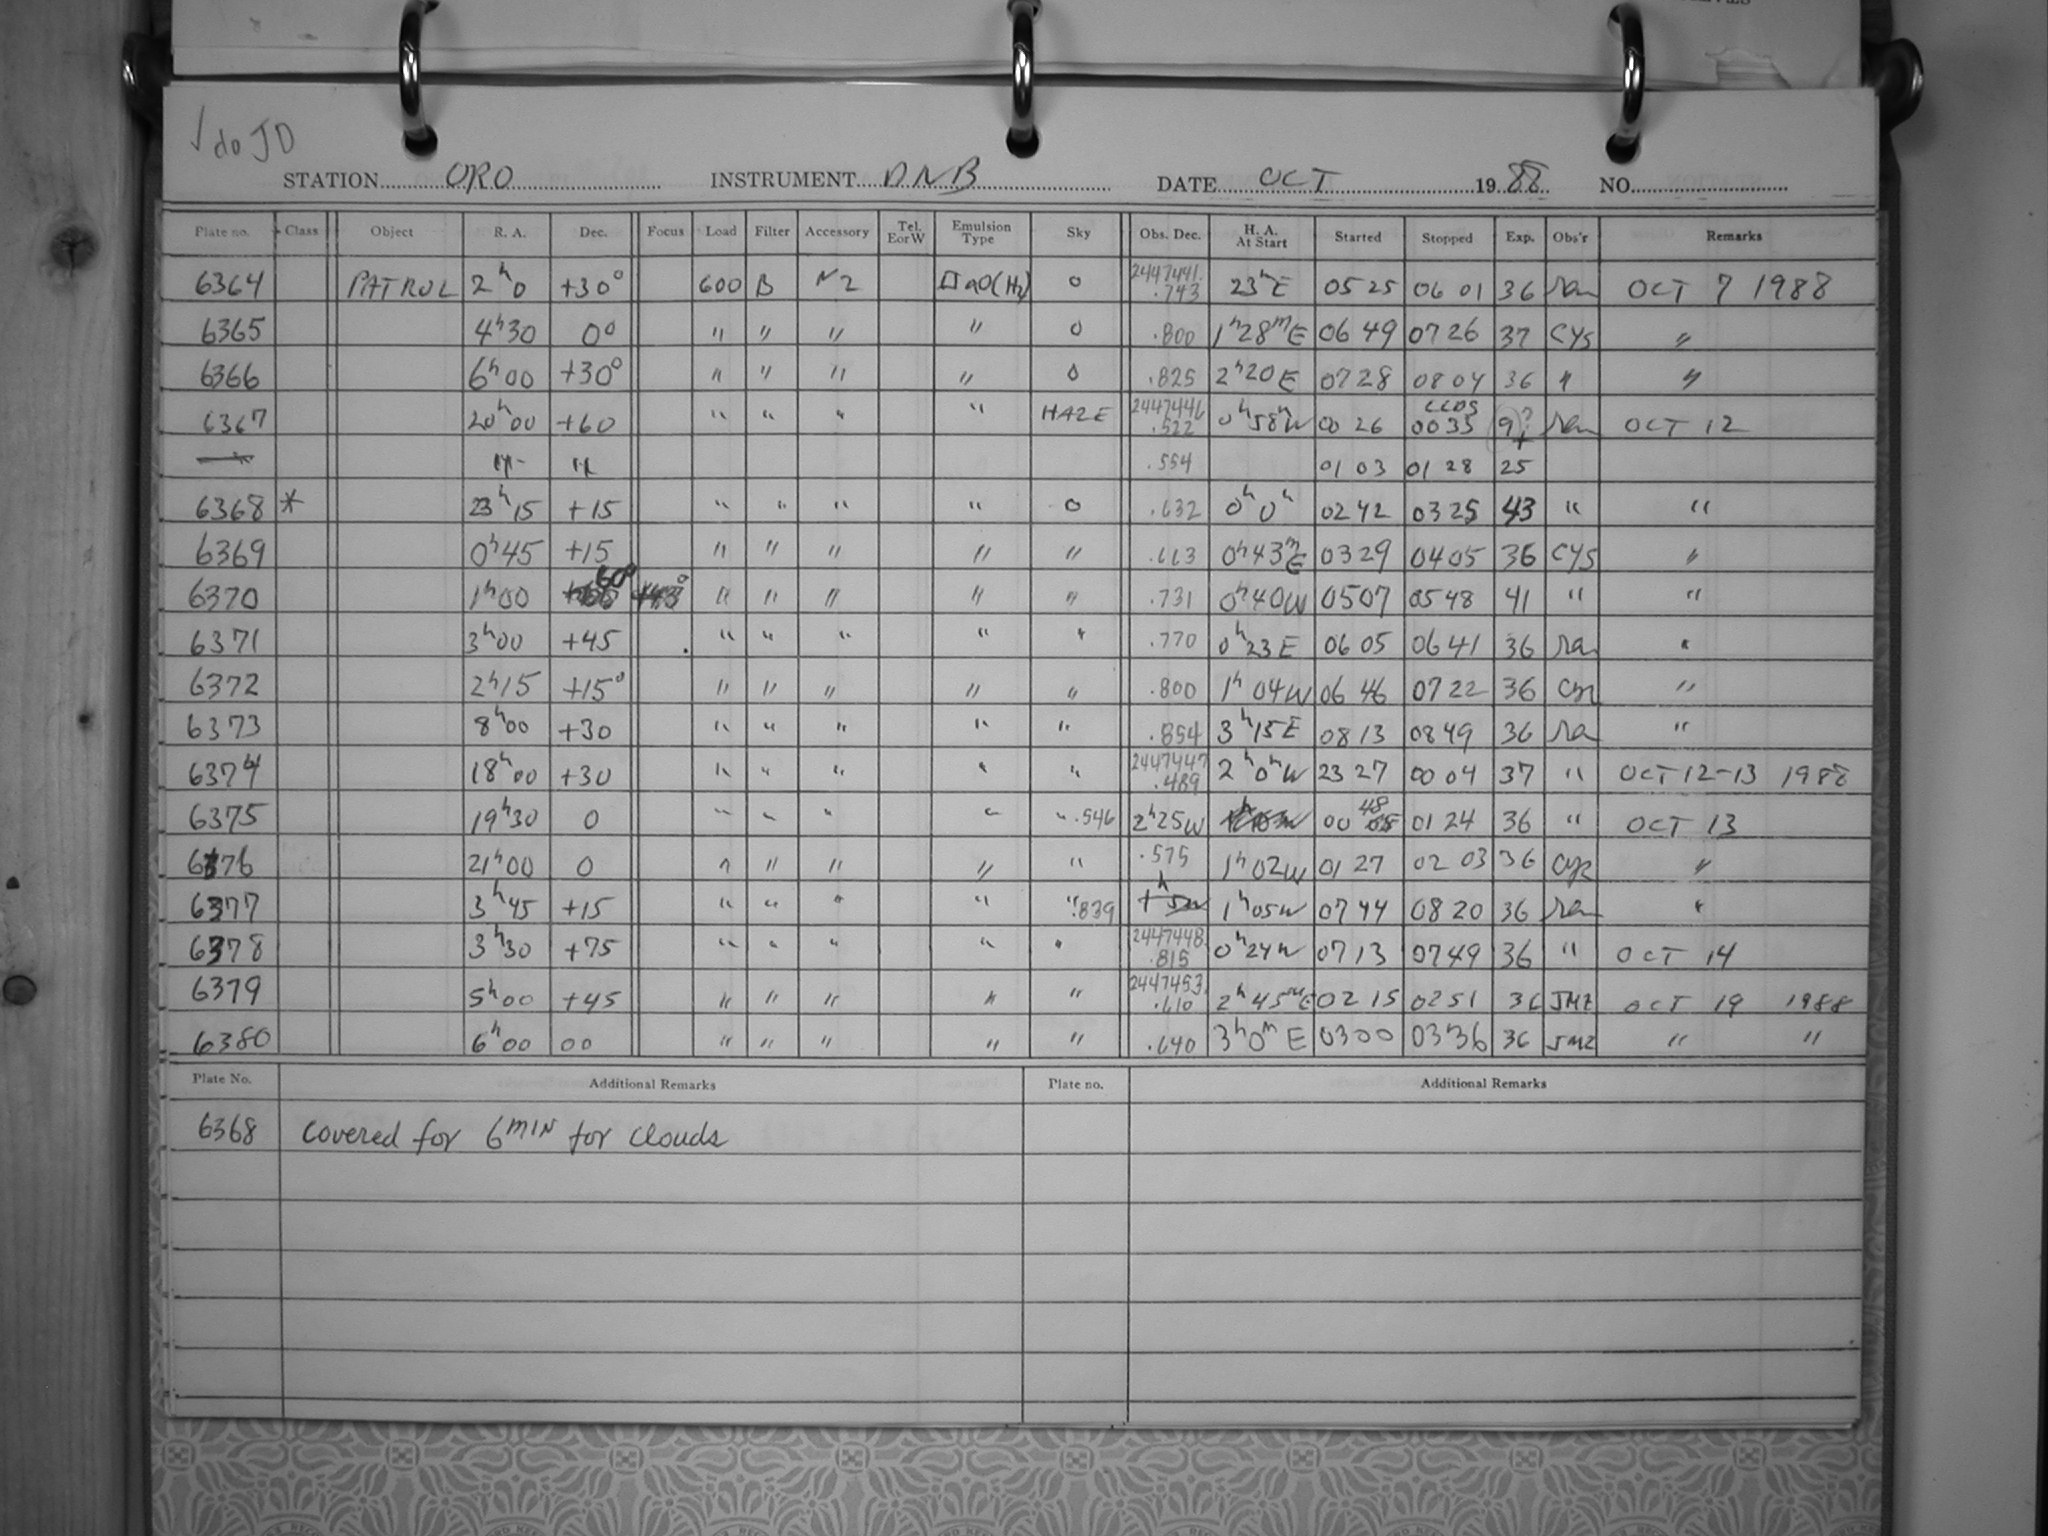 √ do JD
STATION ORO INSTRUMENT DNB DATE OCT 1988 NO.
Plate no. Class Object R. A. Dec. Focus Load Filter Accessory Tel. E or W Emulsion Type Sky Obs. Dec. H. A. At Start Started Stopped Exp. Obs'r Remarks
6364 PATROL 2h0 +30° 600 B N2 IIaO(H2) 0 2447441.743 23h E 05 25 06 01 36 OCT 7 1988
6365 4h30 0° " " " " 0 .800 1h28mE 06 49 07 26 37 CYS "
6366 6h00 +30° " " " " 0 .825 2h20E 07 28 08 04 36 " "
6367 20h00 +60 " " " " HAZE 2447446.522 0h58mW 00 26 CLDS 0035 9? OCT 12
" " .554 01 03 01 28 + 25
6368 * 23h15 +15 " " " " 0 .632 0h0h 02 42 03 25 43 " "
6369 0h45 +15 " " " " " .663 0h43mE 03 29 04 05 36 CYS "
6370 1h00 60° " " " " " .731 0h40W 0507 0548 41 " "
6371 3h00 +45 " " " " " .770 0h23E 06 05 06 41 36 "
6372 2h15 +15° " " " " " .800 1h04W 06 46 07 22 36 "
6373 8h00 +30 " " " " " .854 3h15E 08 13 08 49 36 "
6374 18h00 +30 " " " " " 2447447.489 2h0hW 23 27 00 04 37 " OCT 12-13 1988
6375 19h30 0 " " " " " .546 2h25W 00 48 01 24 36 " OCT 13
6376 21h00 0 " " " " " .575 1h02W 01 27 02 03 36 "
6377 3h45 +15 " " " " " .839 1h05W 07 44 08 20 36 "
6378 3h30 +75 " " " " " 2447448.815 0h24W 07 13 07 49 36 " OCT 14
6379 5h00 +45 " " " " 2447453.610 2h45mE 02 15 02 51 36 JMZ OCT 19 1988
6380 6h00 00 " " " " " .640 3h0mE 0300 0336 36 JMZ " "
Plate No. Additional Remarks Plate no. Additional Remarks
6368 Covered for 6MIN for clouds